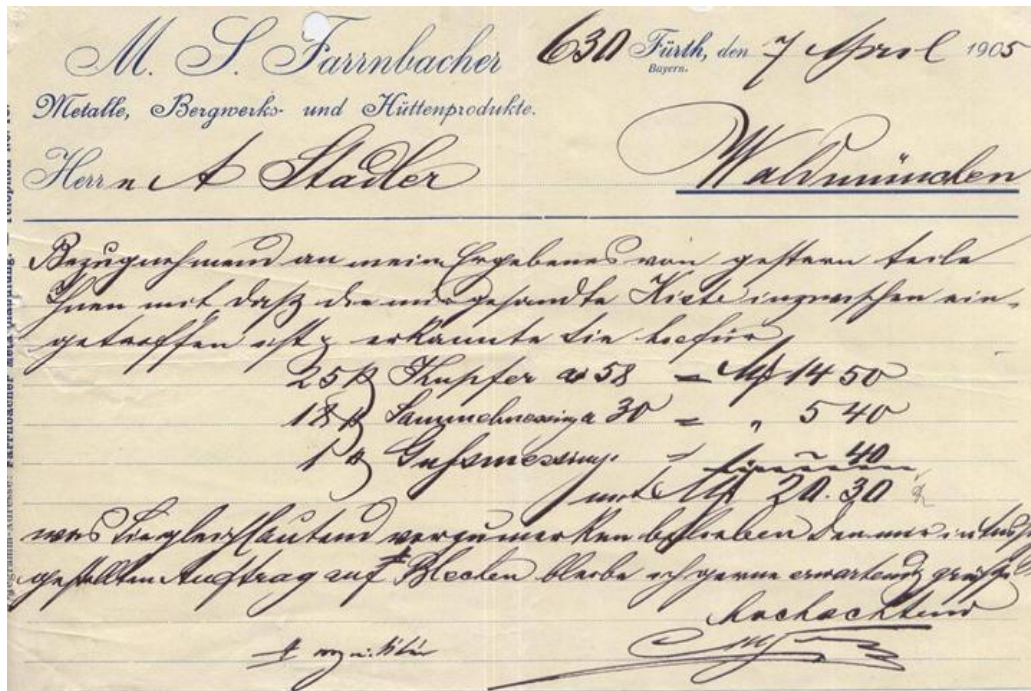 M. S. Farrnbacher
630 Fürth, den 7 April 1905
Bayern.
Metalle, Bergwerks- und Hüttenprodukte.
Herrn A Stadler Waldmünchen
Bezugnehmend an mein Ergebenes von gestern teile
Ihnen mit daß die mir gesandte Kiste inzwischen ein-
getroffen ist & erkannte Sie hiefür
25 ₰ Kupfer a 58 = M 14 50
18 ₰ Sammelmessing a 30 = " 5 40
1 " Gußmessing = " 40
mit M 20.30
was Sie gleichlautend vorzumerken belieben Den mir in
gestellten Auftrag auf Blechen bleibe ich gerne erwartend
hochachtend